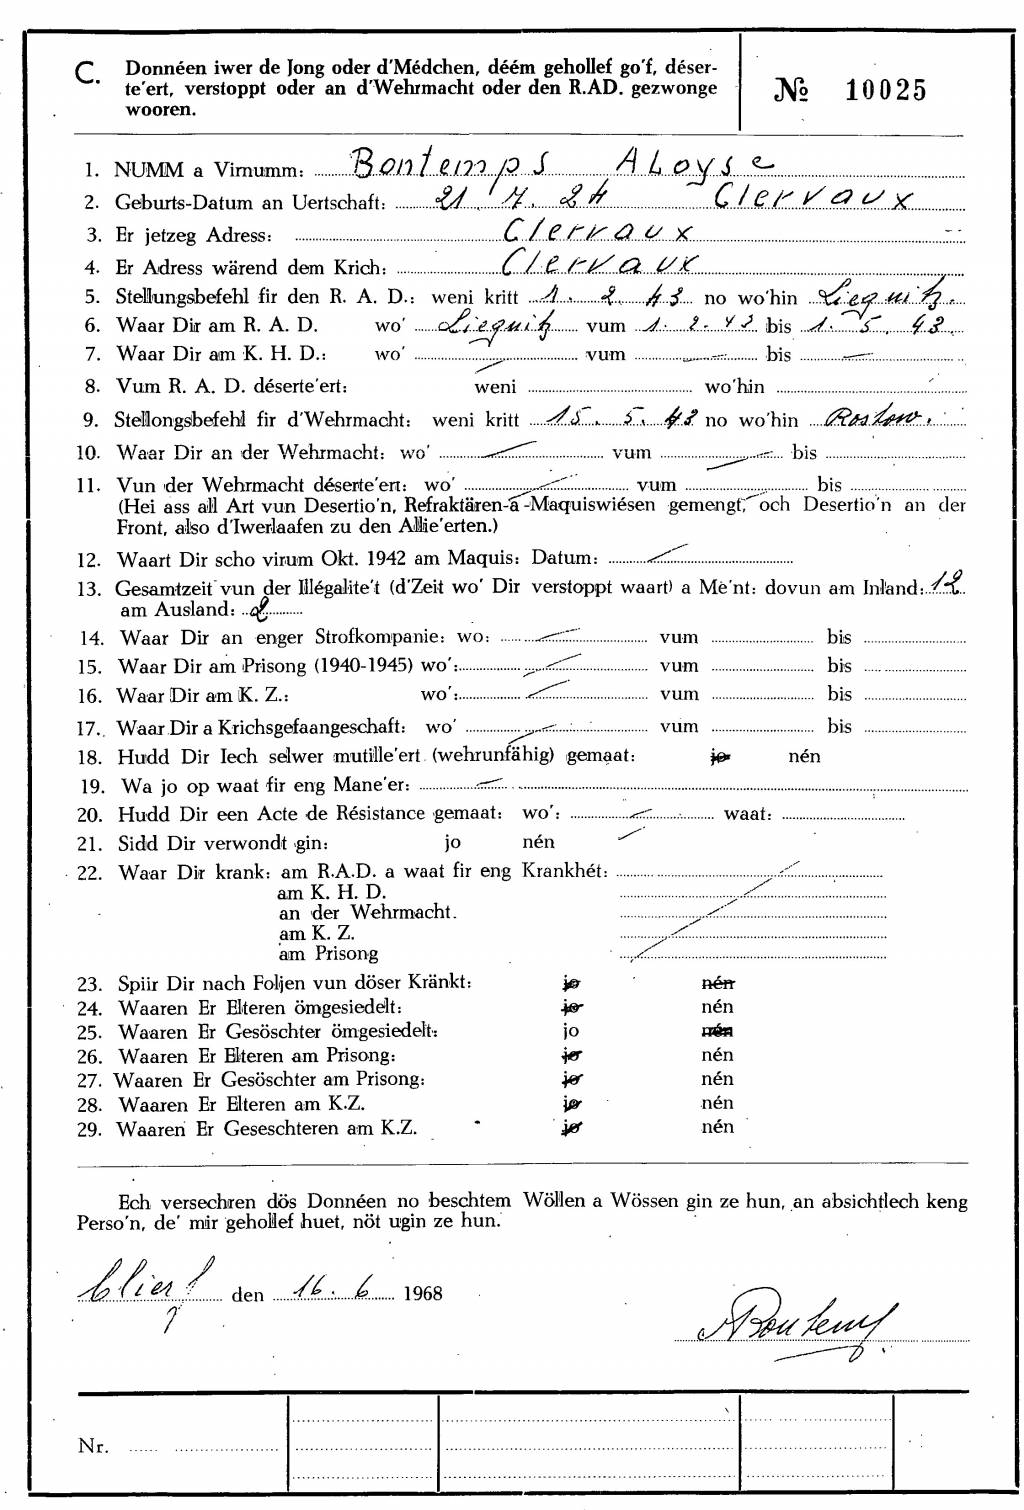 C. Donnéen iwer de Jong oder d'Médchen, déém gehollef go'f, déser-
te'ert, verstoppt oder an d'Wehrmacht oder den R.AD. gezwonge
wooren.
№ 10025
1. NUMM a Virnumm: Bontemps Aloyse
2. Geburts-Datum an Uertschaft: 21. 7. 24 Clervaux
3. Er jetzeg Adress: Clervaux
4. Er Adress wärend dem Krich: Clervaux
5. Stellungsbefehl fir den R. A. D.: weni kritt 1. 2. 43 no wo'hin Liegnitz.
6. Waar Dir am R. A. D. wo' Liegnitz vum 1. 2. 43 bis 1. 5. 43.
7. Waar Dir am K. H. D.: wo' — vum — bis —
8. Vum R. A. D. déserte'ert: weni wo'hin
9. Stellongsbefehl fir d'Wehrmacht: weni kritt 15. 5. 43 no wo'hin Rostow.
10. Waar Dir an der Wehrmacht: wo' — vum — bis
11. Vun der Wehrmacht déserte'ert: wo' — vum — bis
(Hei ass all Art vun Desertio'n, Refraktären-a-Maquiswiésen gemengt, och Desertio'n an der
Front, also d'Iwerlaafen zu den Allie'erten.)
12. Waart Dir scho virum Okt. 1942 am Maquis: Datum: —
13. Gesamtzeit vun der Illégalite't (d'Zeit wo' Dir verstoppt waart) a Me'nt: dovun am Inland: 12
am Ausland: 2
14. Waar Dir an enger Strofkompanie: wo: — vum bis
15. Waar Dir am Prisong (1940-1945) wo': — vum bis
16. Waar Dir am K. Z.: wo': — vum bis
17. Waar Dir a Krichsgefaangeschaft: wo' — vum bis
18. Hudd Dir Iech selwer mutille'ert (wehrunfähig) gemaat: jo nén
19. Wa jo op waat fir eng Mane'er: —
20. Hudd Dir een Acte de Résistance gemaat: wo': — waat:
21. Sidd Dir verwondt gin: jo nén —
22. Waar Dir krank: am R.A.D. a waat fir eng Krankhét:
am K. H. D.
an der Wehrmacht.
am K. Z.
am Prisong
23. Spiir Dir nach Foljen vun döser Kränkt: jo nén
24. Waaren Er Elteren ömgesiedelt: jo nén
25. Waaren Er Gesöschter ömgesiedelt: jo nén
26. Waaren Er Elteren am Prisong: jo nén
27. Waaren Er Gesöschter am Prisong: jo nén
28. Waaren Er Elteren am K.Z. jo nén
29. Waaren Er Geseschteren am K.Z. jo nén
Ech versechren dös Donnéen no beschtem Wöllen a Wössen gin ze hun, an absichtlech keng
Perso'n, de' mir gehollef huet, nöt ugin ze hun.
Clierf den 16. 6 1968
ABontemps
Nr.